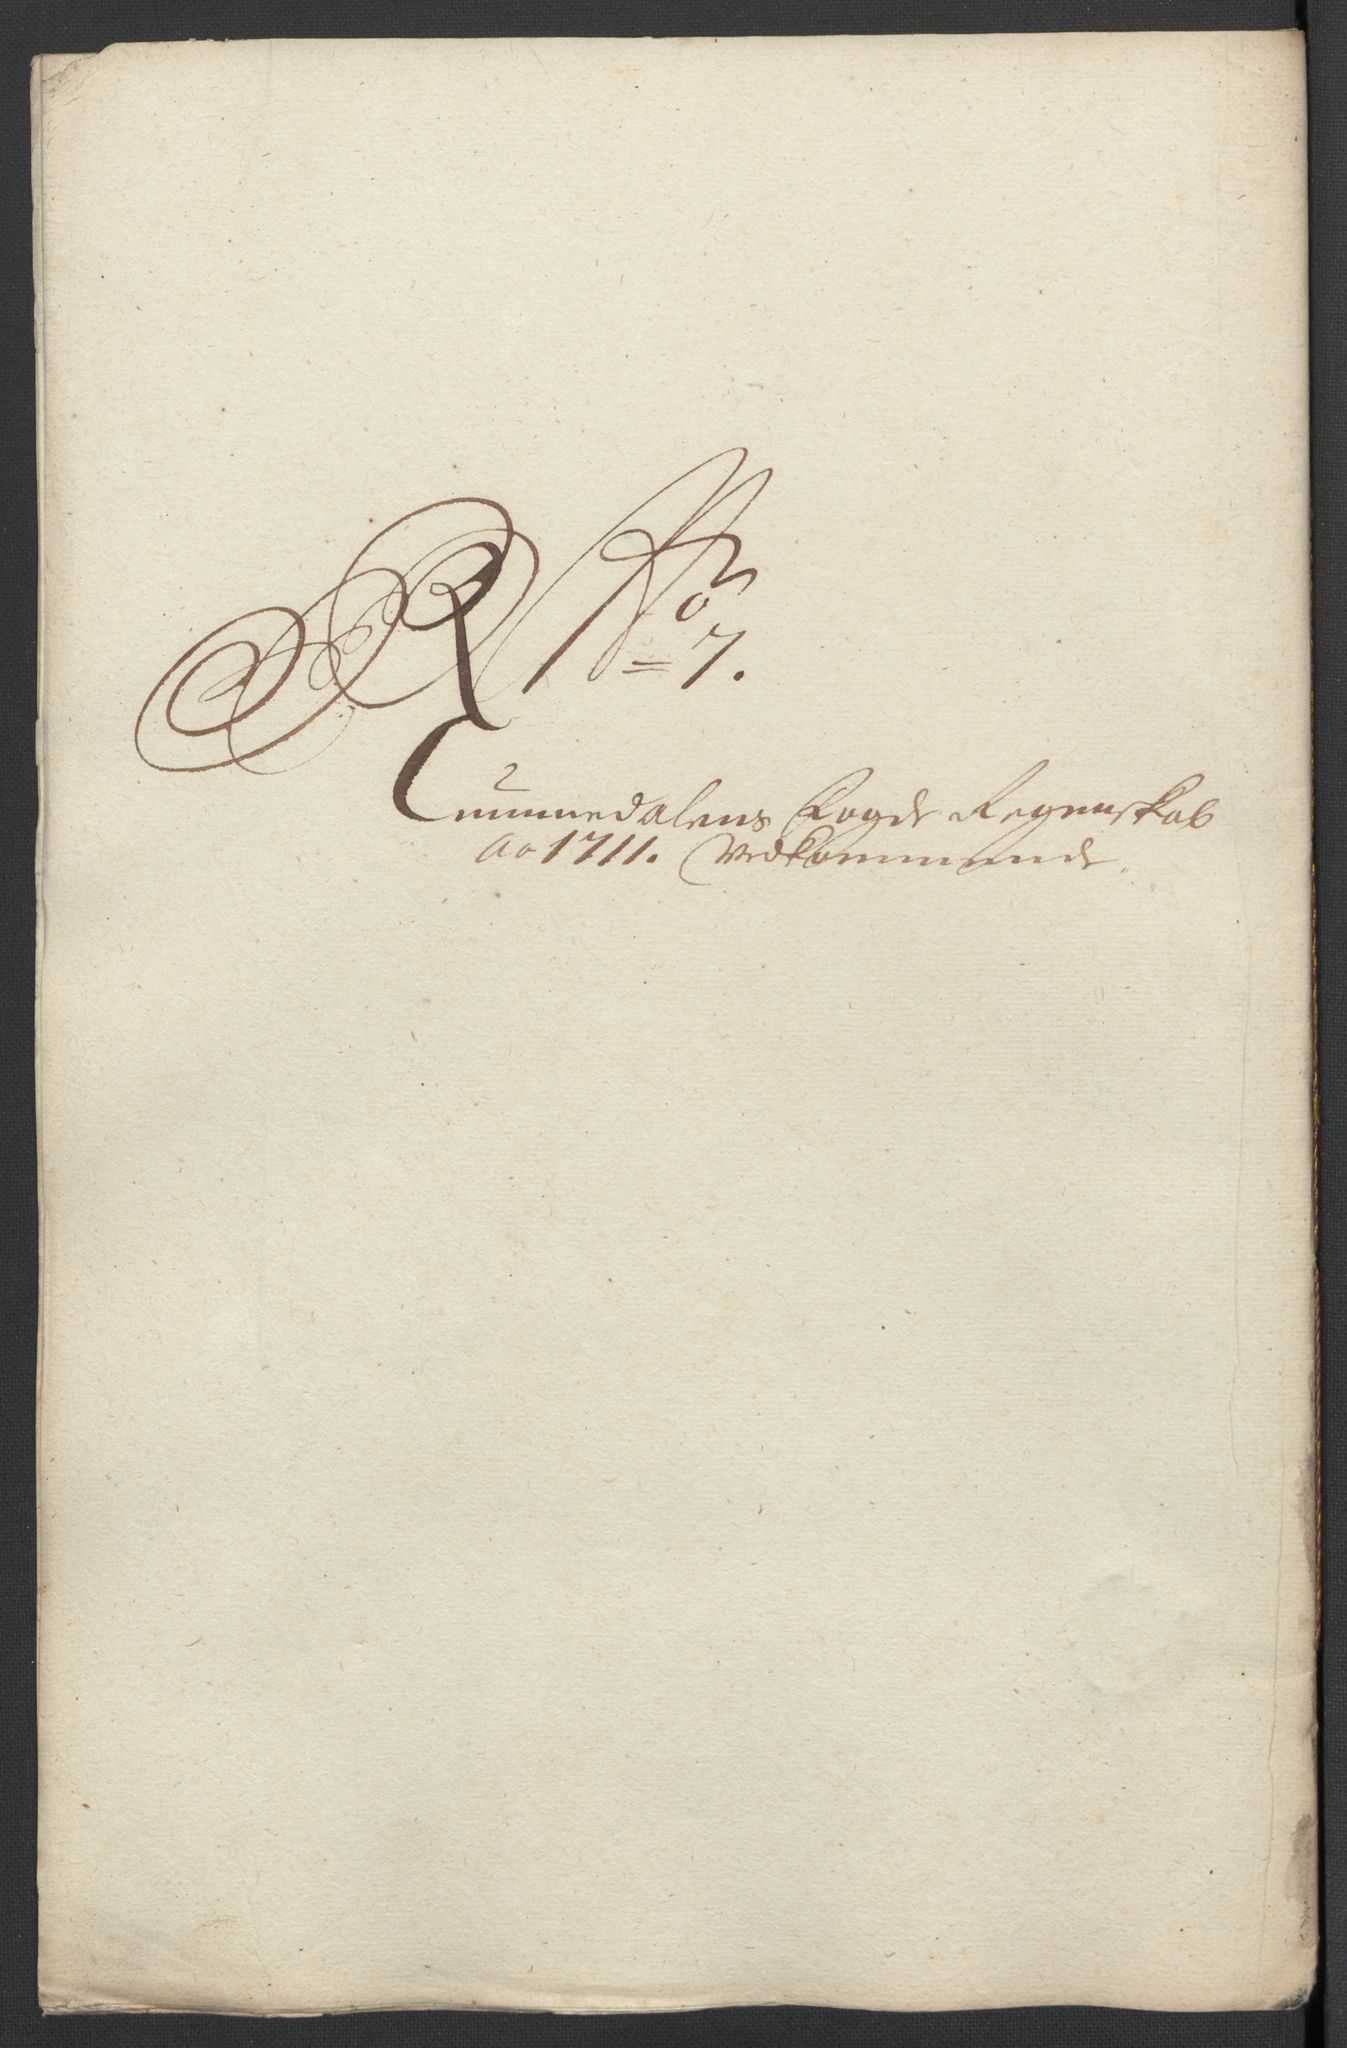 No 7.
Nummedalens Fogde Regenskab
Ao 1711. Vedkommende.